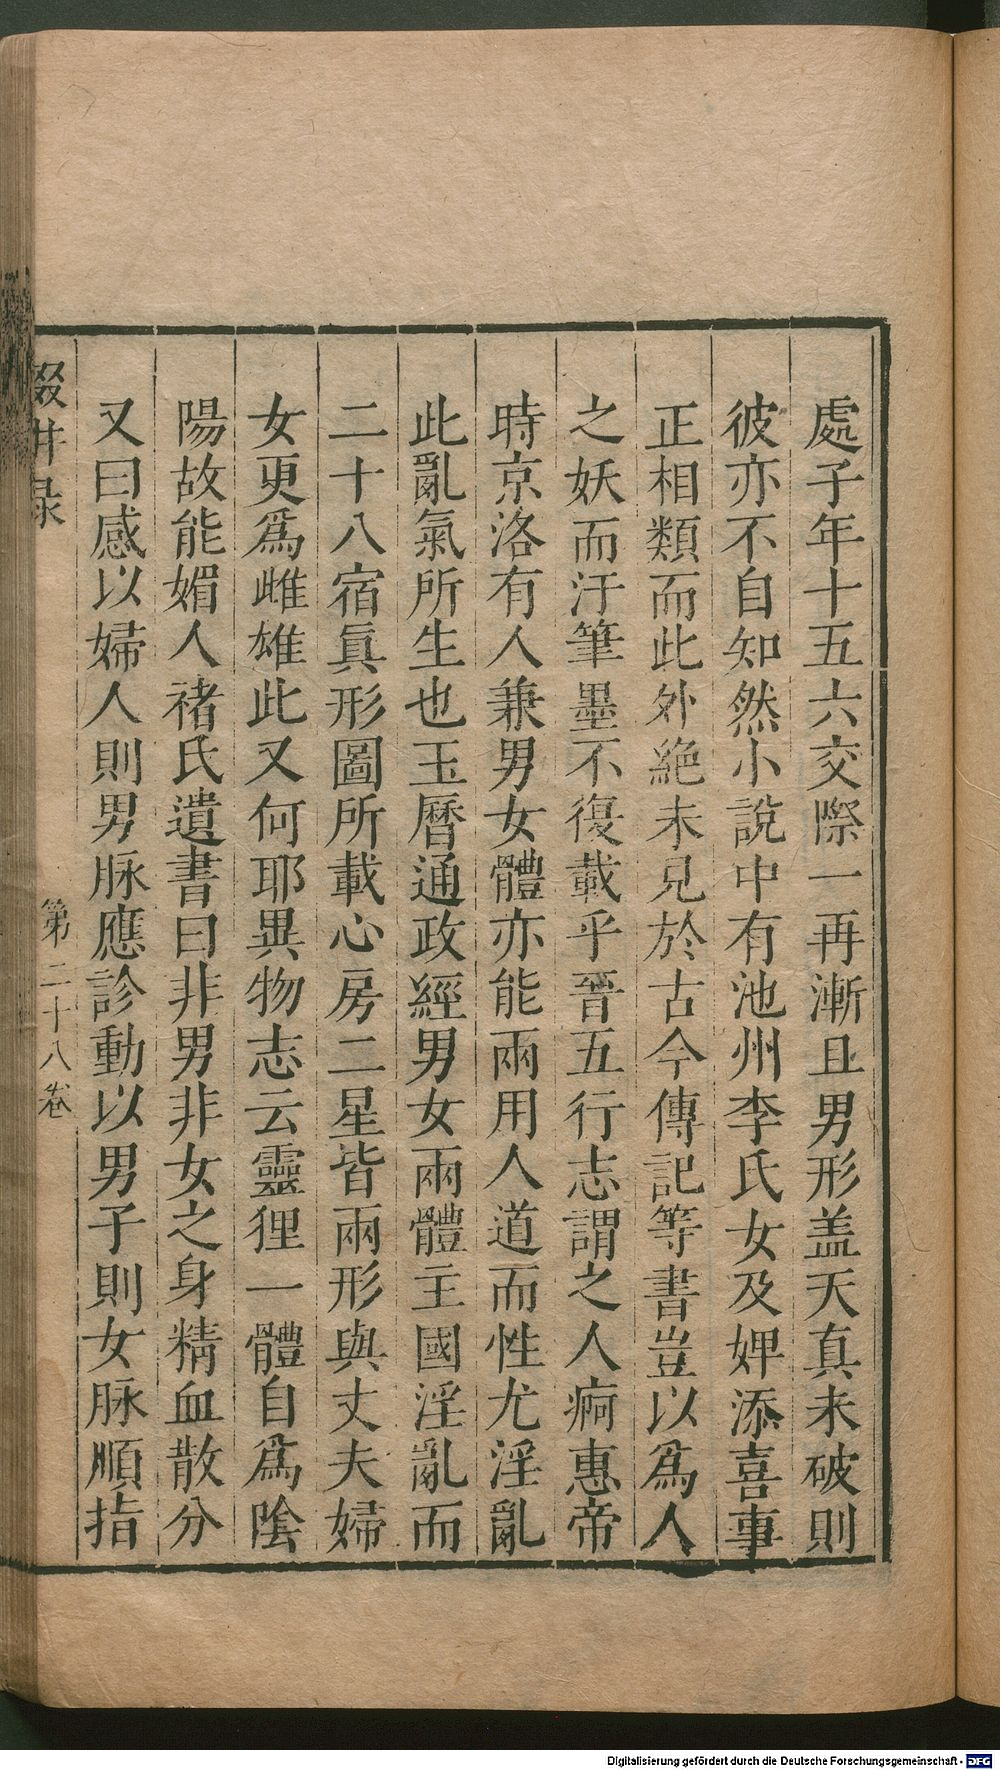 處子年十五六交際一再漸且男形盖天真未破則
彼亦不自知然小說中有池州李氏女及婢添喜事
正相類而此外絕未見於古今傳記等書豈以爲人
之妖而汙筆墨不復載乎晉五行志謂之人痾惠帝
時京洛有人兼男女體亦能兩用人道而性尤淫亂
此亂氣所生也玉曆通政經男女兩體主國淫亂而
二十八宿眞形圖所載心房二星皆兩形與丈夫婦
女更爲雌雄此又何耶異物志云靈狸一體自爲陰
陽故能媚人禇氏遺書曰非男非女之身精血散分
又曰感以婦人則男脉應診動以男子則女脉順指
輟耕录 第二十八卷
Digitalisierung gefördert durch die Deutsche Forschungsgemeinschaft - DFG